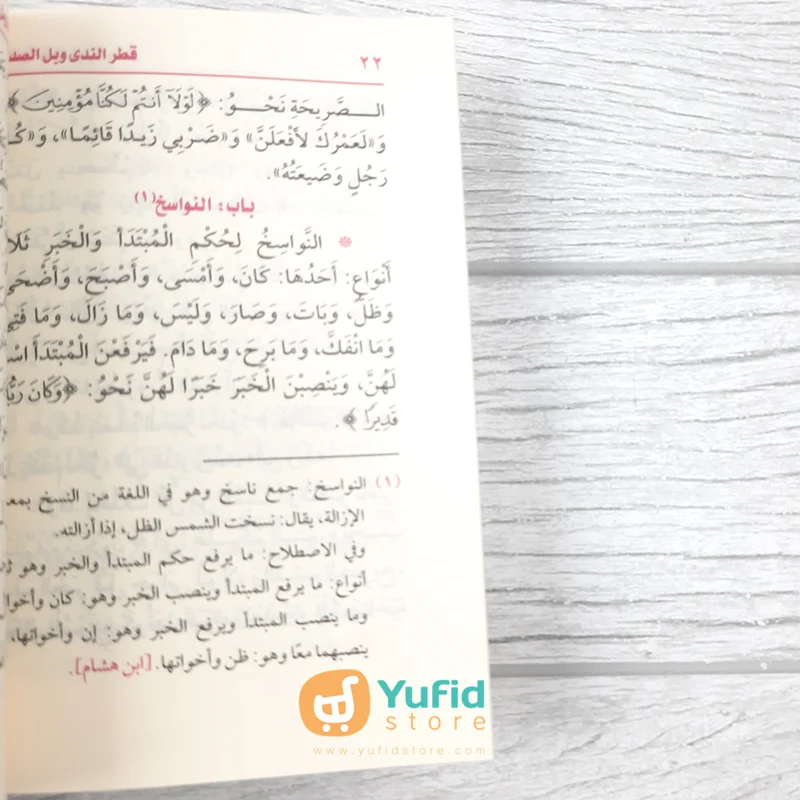 ٢٢ قطر الندى وبل الصد
الصَّرِيحَةِ نَحْوُ: ﴿لَوْلَا أَنتُمْ لَكُنَّا مُؤْمِنِينَ﴾
وَ«لَعَمْرُكَ لأَفْعَلَنَّ» وَ«ضَرْبِي زَيدًا قَائِمًا»، وَ«كُـ
رَجُلٍ وَضَيعَتُهُ».
باب: النواسخ(١)
* النَّوَاسِخُ لِحُكْمِ الْمُبْتَدَأْ وَالْخَبَرِ ثَلا
أَنْوَاعٍ: أَحَدُهَا: كَانَ، وَأَمْسَى، وَأَصْبَحَ، وَأَضْحَى
وَظَلَّ، وَبَاتَ، وَصَارَ، وَلَيْسَ، وَمَا زَالَ، وَمَا فَتِئَ
وَمَا انْفَكَّ، وَمَا بَرِحَ، وَمَا دَامَ. فَيَرْفَعْنَ الْمُبْتَدَأَ اسْـ
لَهُنَّ، وَيَنْصِبْنَ الْخَبَرَ خَبَرًا لَهُنَّ نَحْوُ: ﴿وَكَانَ رَبُّـ
قَدِيرًا﴾.
(١) النواسخ: جمع ناسخ وهو في اللغة من النسخ بمعـ
الإزالة، يقال: نسخت الشمس الظل، إذا أزالته.
وفي الاصطلاح: ما يرفع حكم المبتدأ والخبر وهو ثلا
أنواع: ما يرفع المبتدأ وينصب الخبر وهو: كان وأخوا
وما ينصب المبتدأ ويرفع الخبر وهو: إن وأخواتها،
ينصبهما معًا وهو: ظن وأخواتها. [ابن هشام].
Yufid
store
www.yufidstore.com